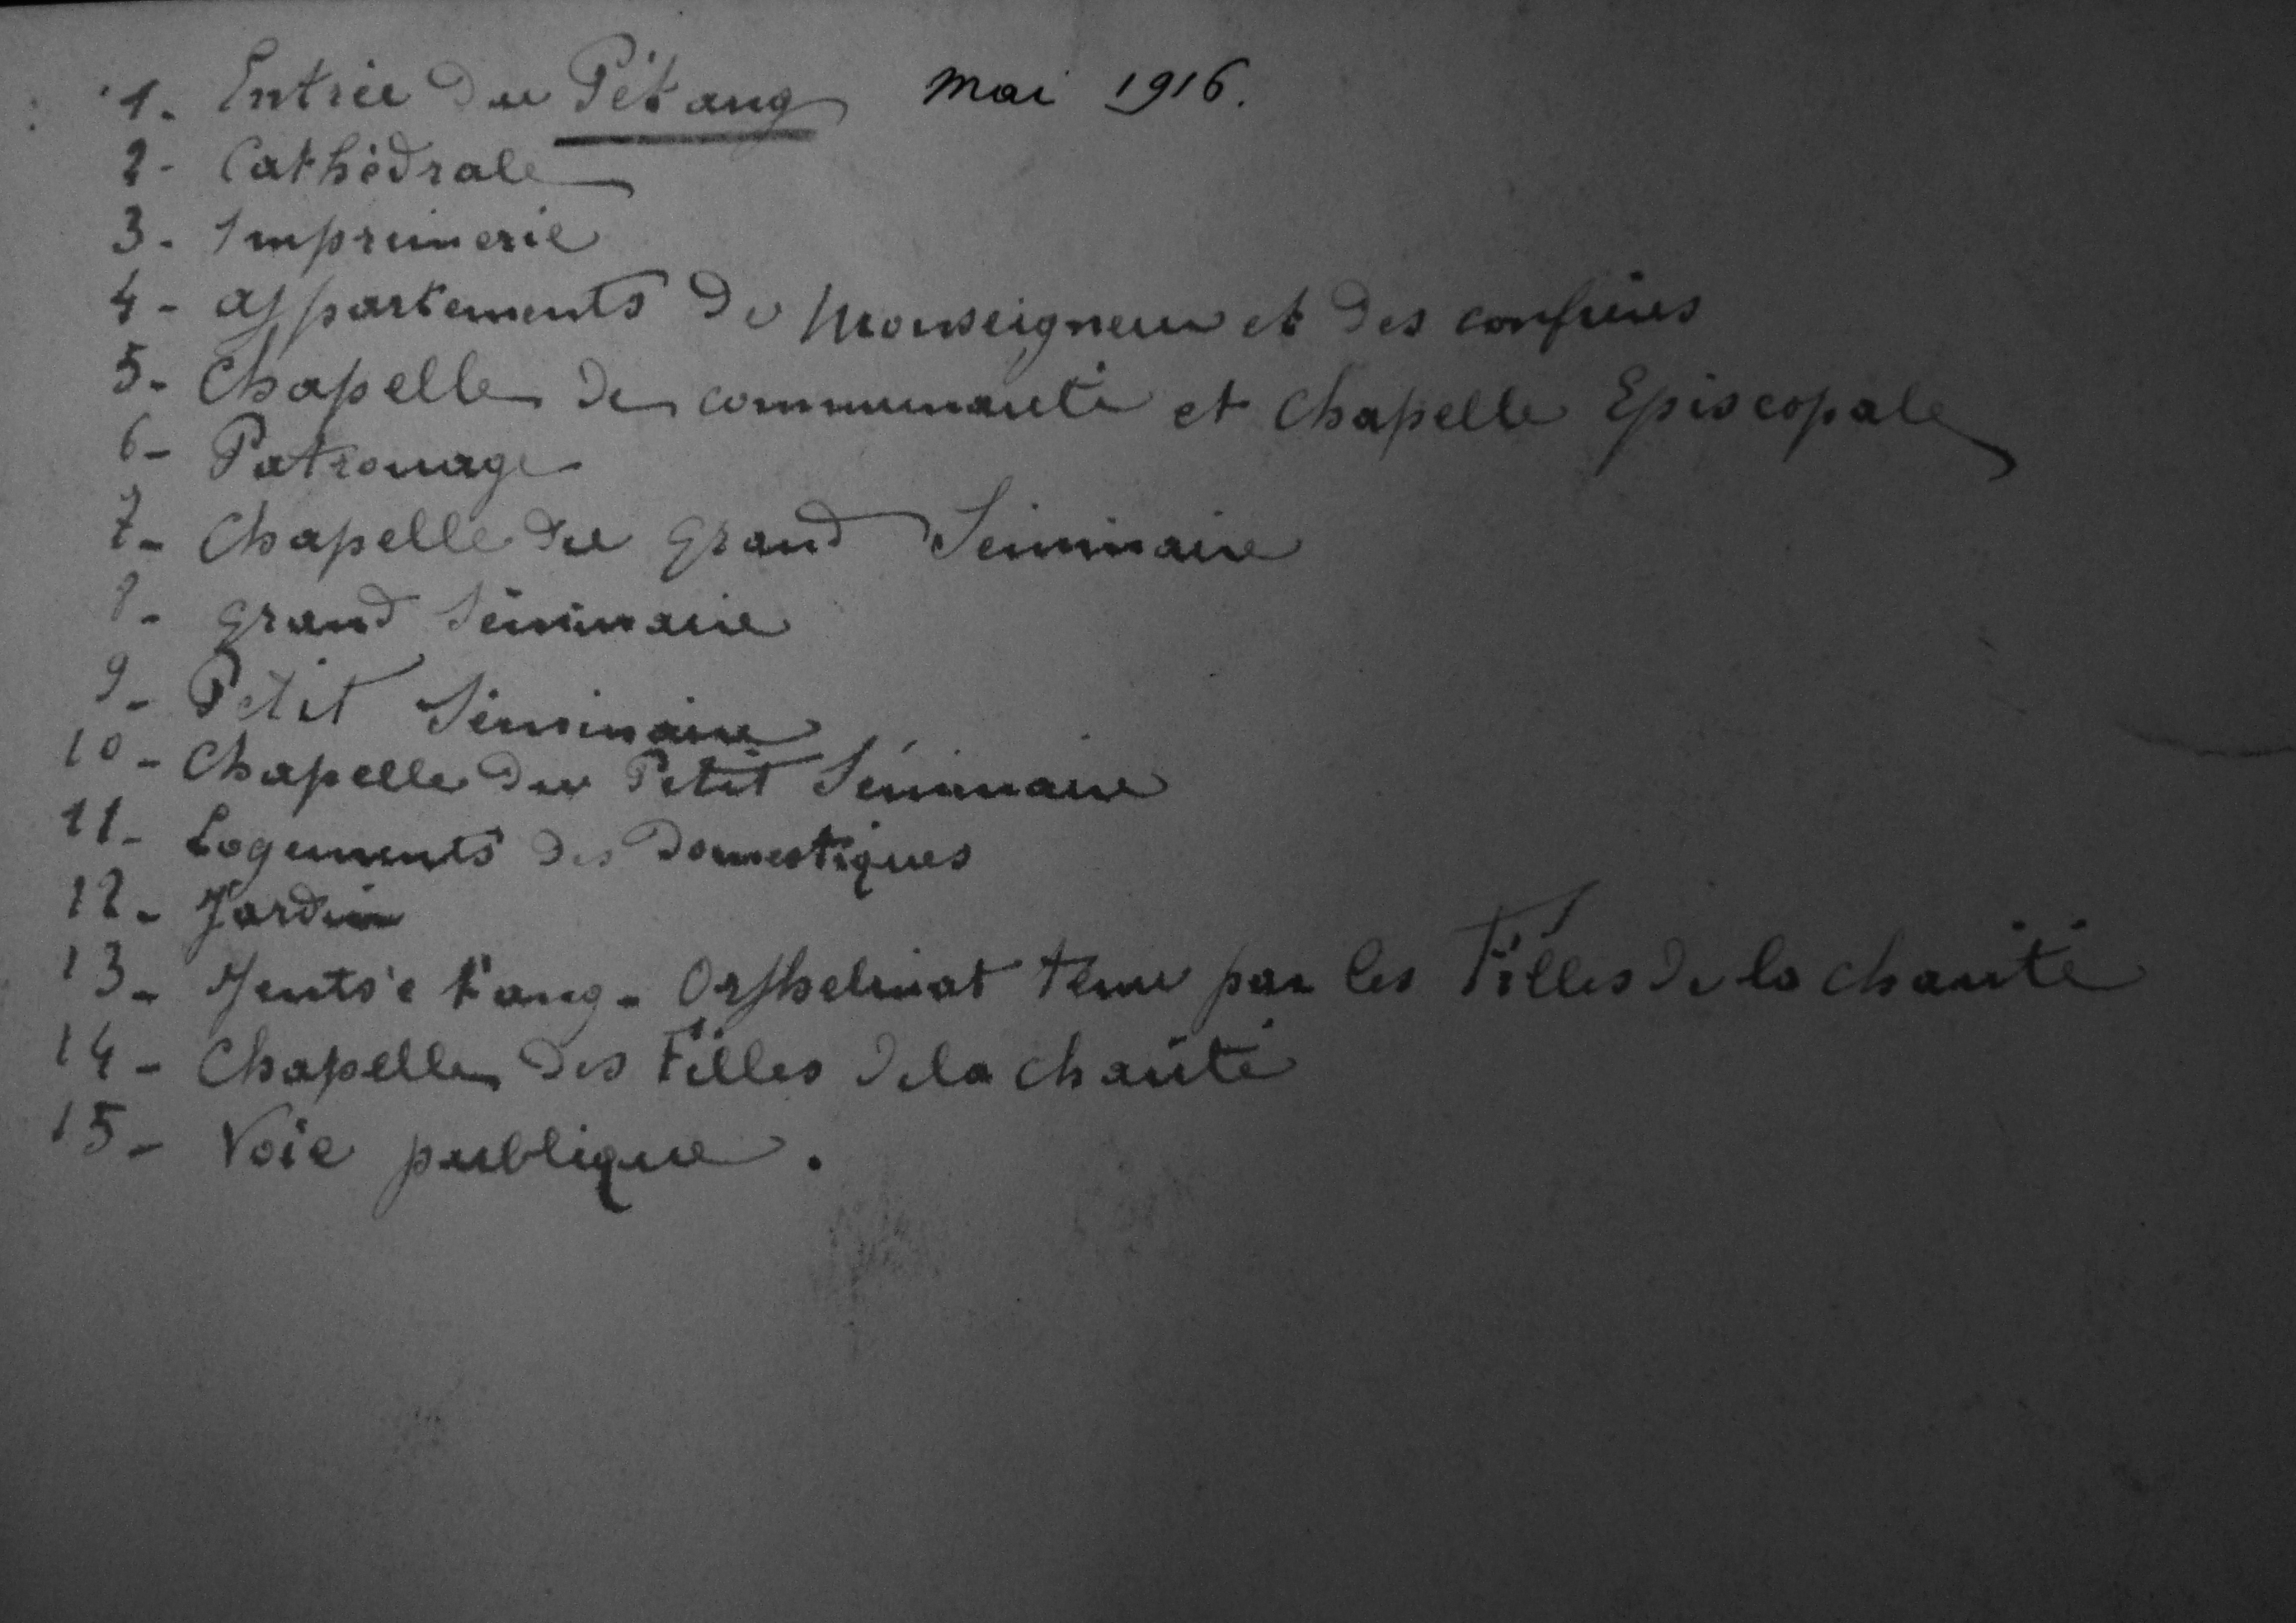 1. Entrée du Pét'ang Mai 1916.
2- Cathédrale
3- Imprimerie
4- appartements de Monseigneur et des confrères
5- Chapelle de communauté et Chapelle Episcopale
6- Patronage
7- Chapelle du grand Séminaire
8- grand Séminaire
9- Petit Séminaire
10- Chapelle du Petit Séminaire
11- Logements des Domestiques
12- Jardin
13- Jents'e t'ang- Orphelinat tenu par les Filles de la charité
14- Chapelle des Filles de la charité
15- Voie publique.